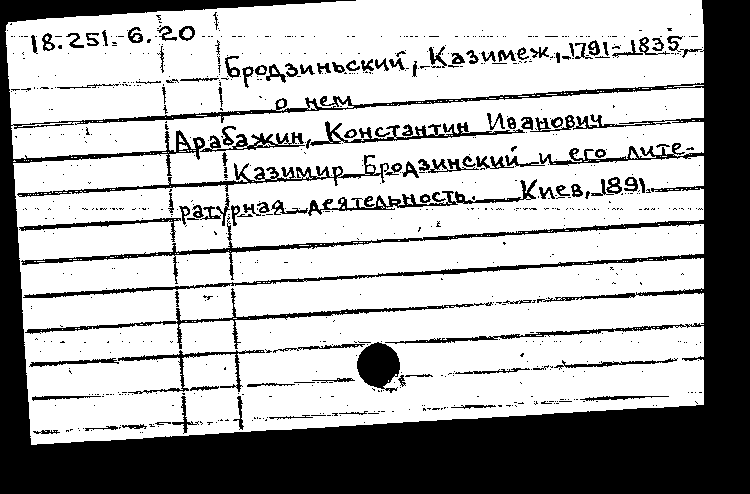 18.251.6.20
Бродзиньский, Казимеж, 1791-1835,
о нем
Арабажин, Константин Иванович
Казимир Бродзинский и его лите-
ратурная деятельность. Киев, 1891